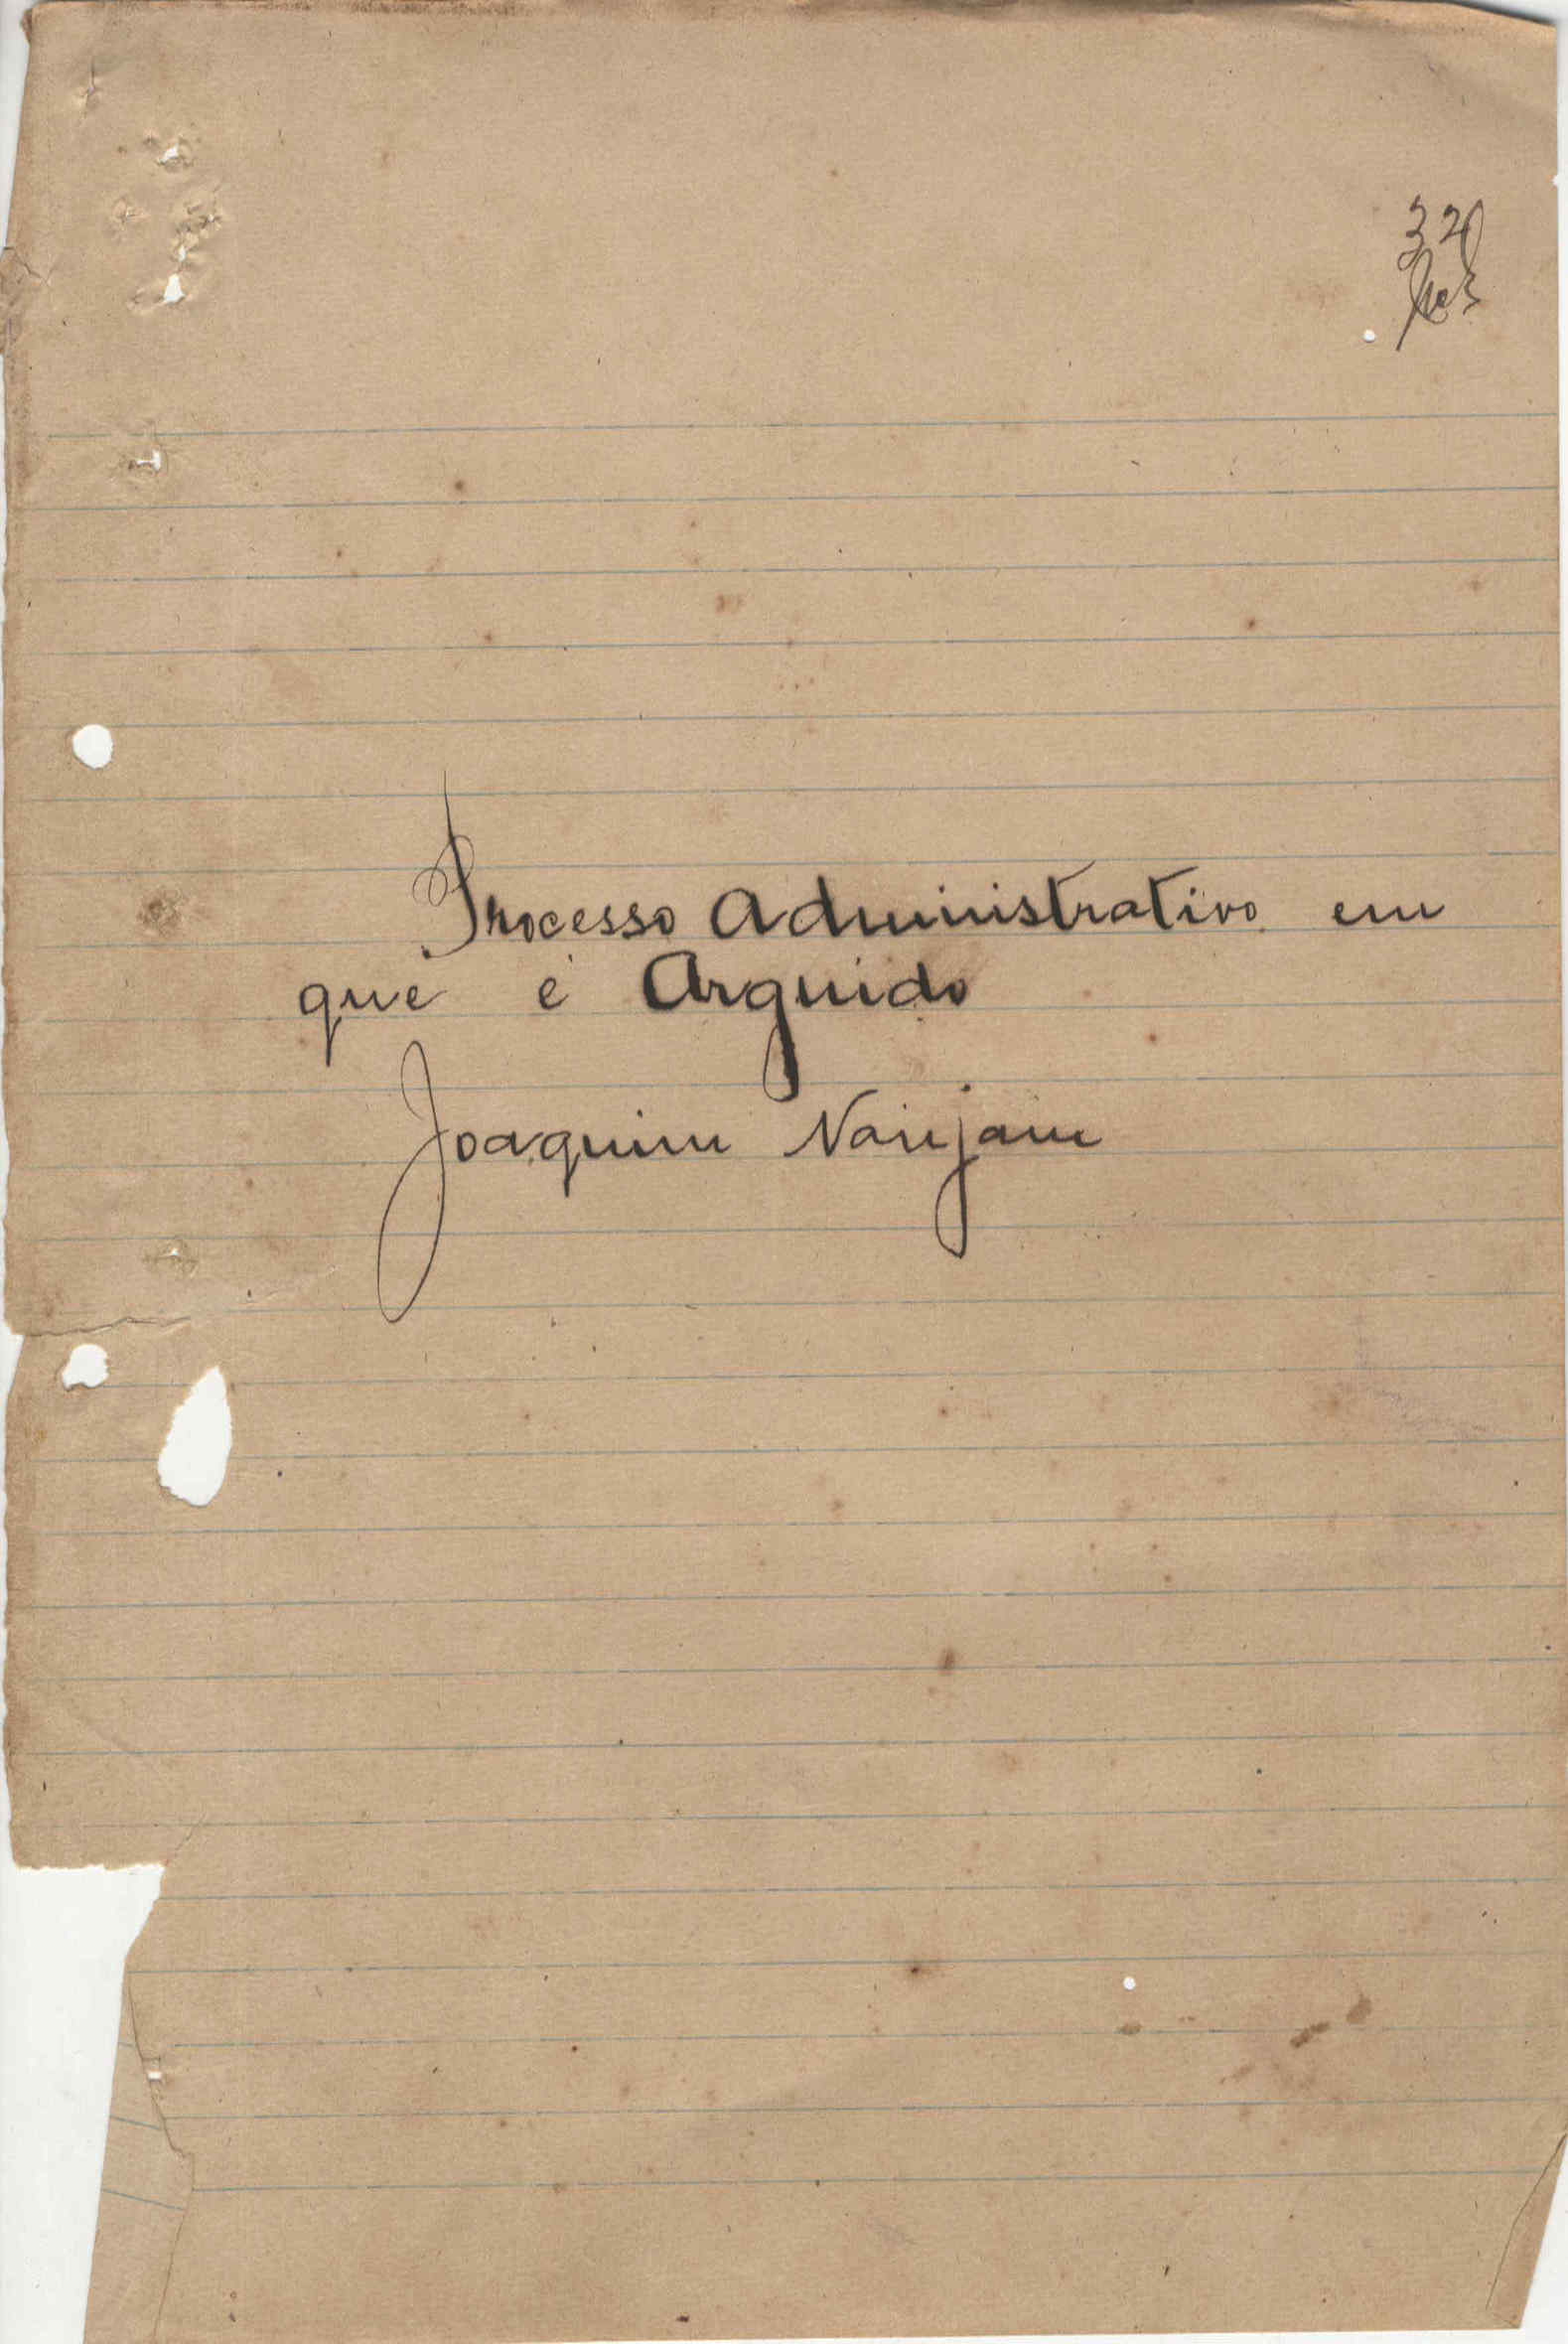 32
Processo Administrativo em
que é Arguido
Joaquim Nanjam